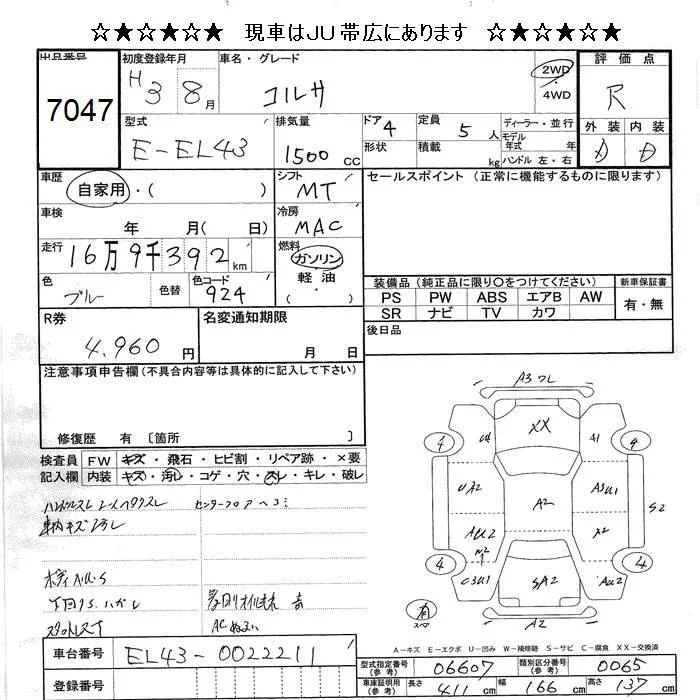 ☆★☆★☆★ 現車はJU帯広にあります ☆★☆★☆★
出品番号 初度登録年月 車名・グレード 評価点
7047 H3 8月 コルサ 2WD 4WD R
型式 排気量 ドア 4 定員 5人 ディーラー・並行 外装 内装
E-EL43 1500 cc 形状 積載 kg モデル年式 年 D D
ハンドル 左・右
車歴 自家用・( ) シフト MT セールスポイント (正常に機能するものに限ります)
車検 年 月( 日) 冷房 MAC
走行 16万9千392km 燃料 ガソリン
軽油・( )
色 ブルー 色替 色コード 924 装備品 (純正品に限り○をつけてください) 新車保証書
PS PW ABS エアB AW 有・無
SR ナビ TV カワ
R券 4,960円 名変通知期限 月 日 後日品
注意事項申告欄(不具合内容等は具体的に記入して下さい)
修復歴 有 〔箇所 〕
検査員記入欄 FW キズ・飛石・ヒビ割・リペア跡・×要
内装 キズ・汚レ・コゲ・穴・スレ・キレ・破レ
センターフロアヘコミ
A3 ワレ
4 U1 XX A1 4
UA2 A2 A3U1 S2
AU2 A2
M2
4 C3U1 SA2 AU2 4
有 スペア A2
A-キズ E-エクボ U-凹み W-補修跡 S-サビ C-腐食 XX-交換済
車台番号 EL43-0022211
型式指定番号(参考) 06607 類別区分番号(参考) 0065
登録番号 車庫証明用(参考) 長さ 411cm 幅 166cm 高さ 137cm